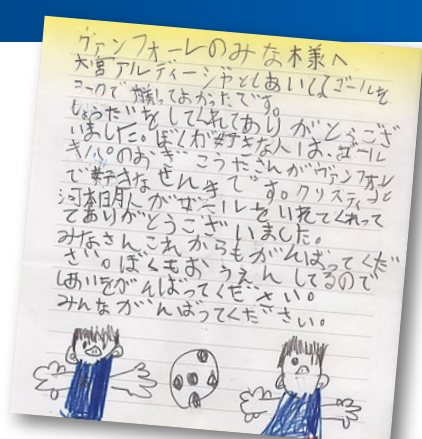 ヴァンフォーレのみな様へ
大宮アルディージャとしあいしてゴールを
で勝ってよかったです。
しょうたいをしてくれてありがとうござ
いました。ぼくが好きな人は、ゴール
キーパーのおぎ こうたさんがヴァンフォーレ
で好きなせんしゅです。クリスティアーノと
河本明人がゴールをいれてくれって
てありがとうございました。
みなさんこれからもがんばってくだ
さい。ぼくもおうえんしてるので
しあいをがんばってください。
みんながんばってください。